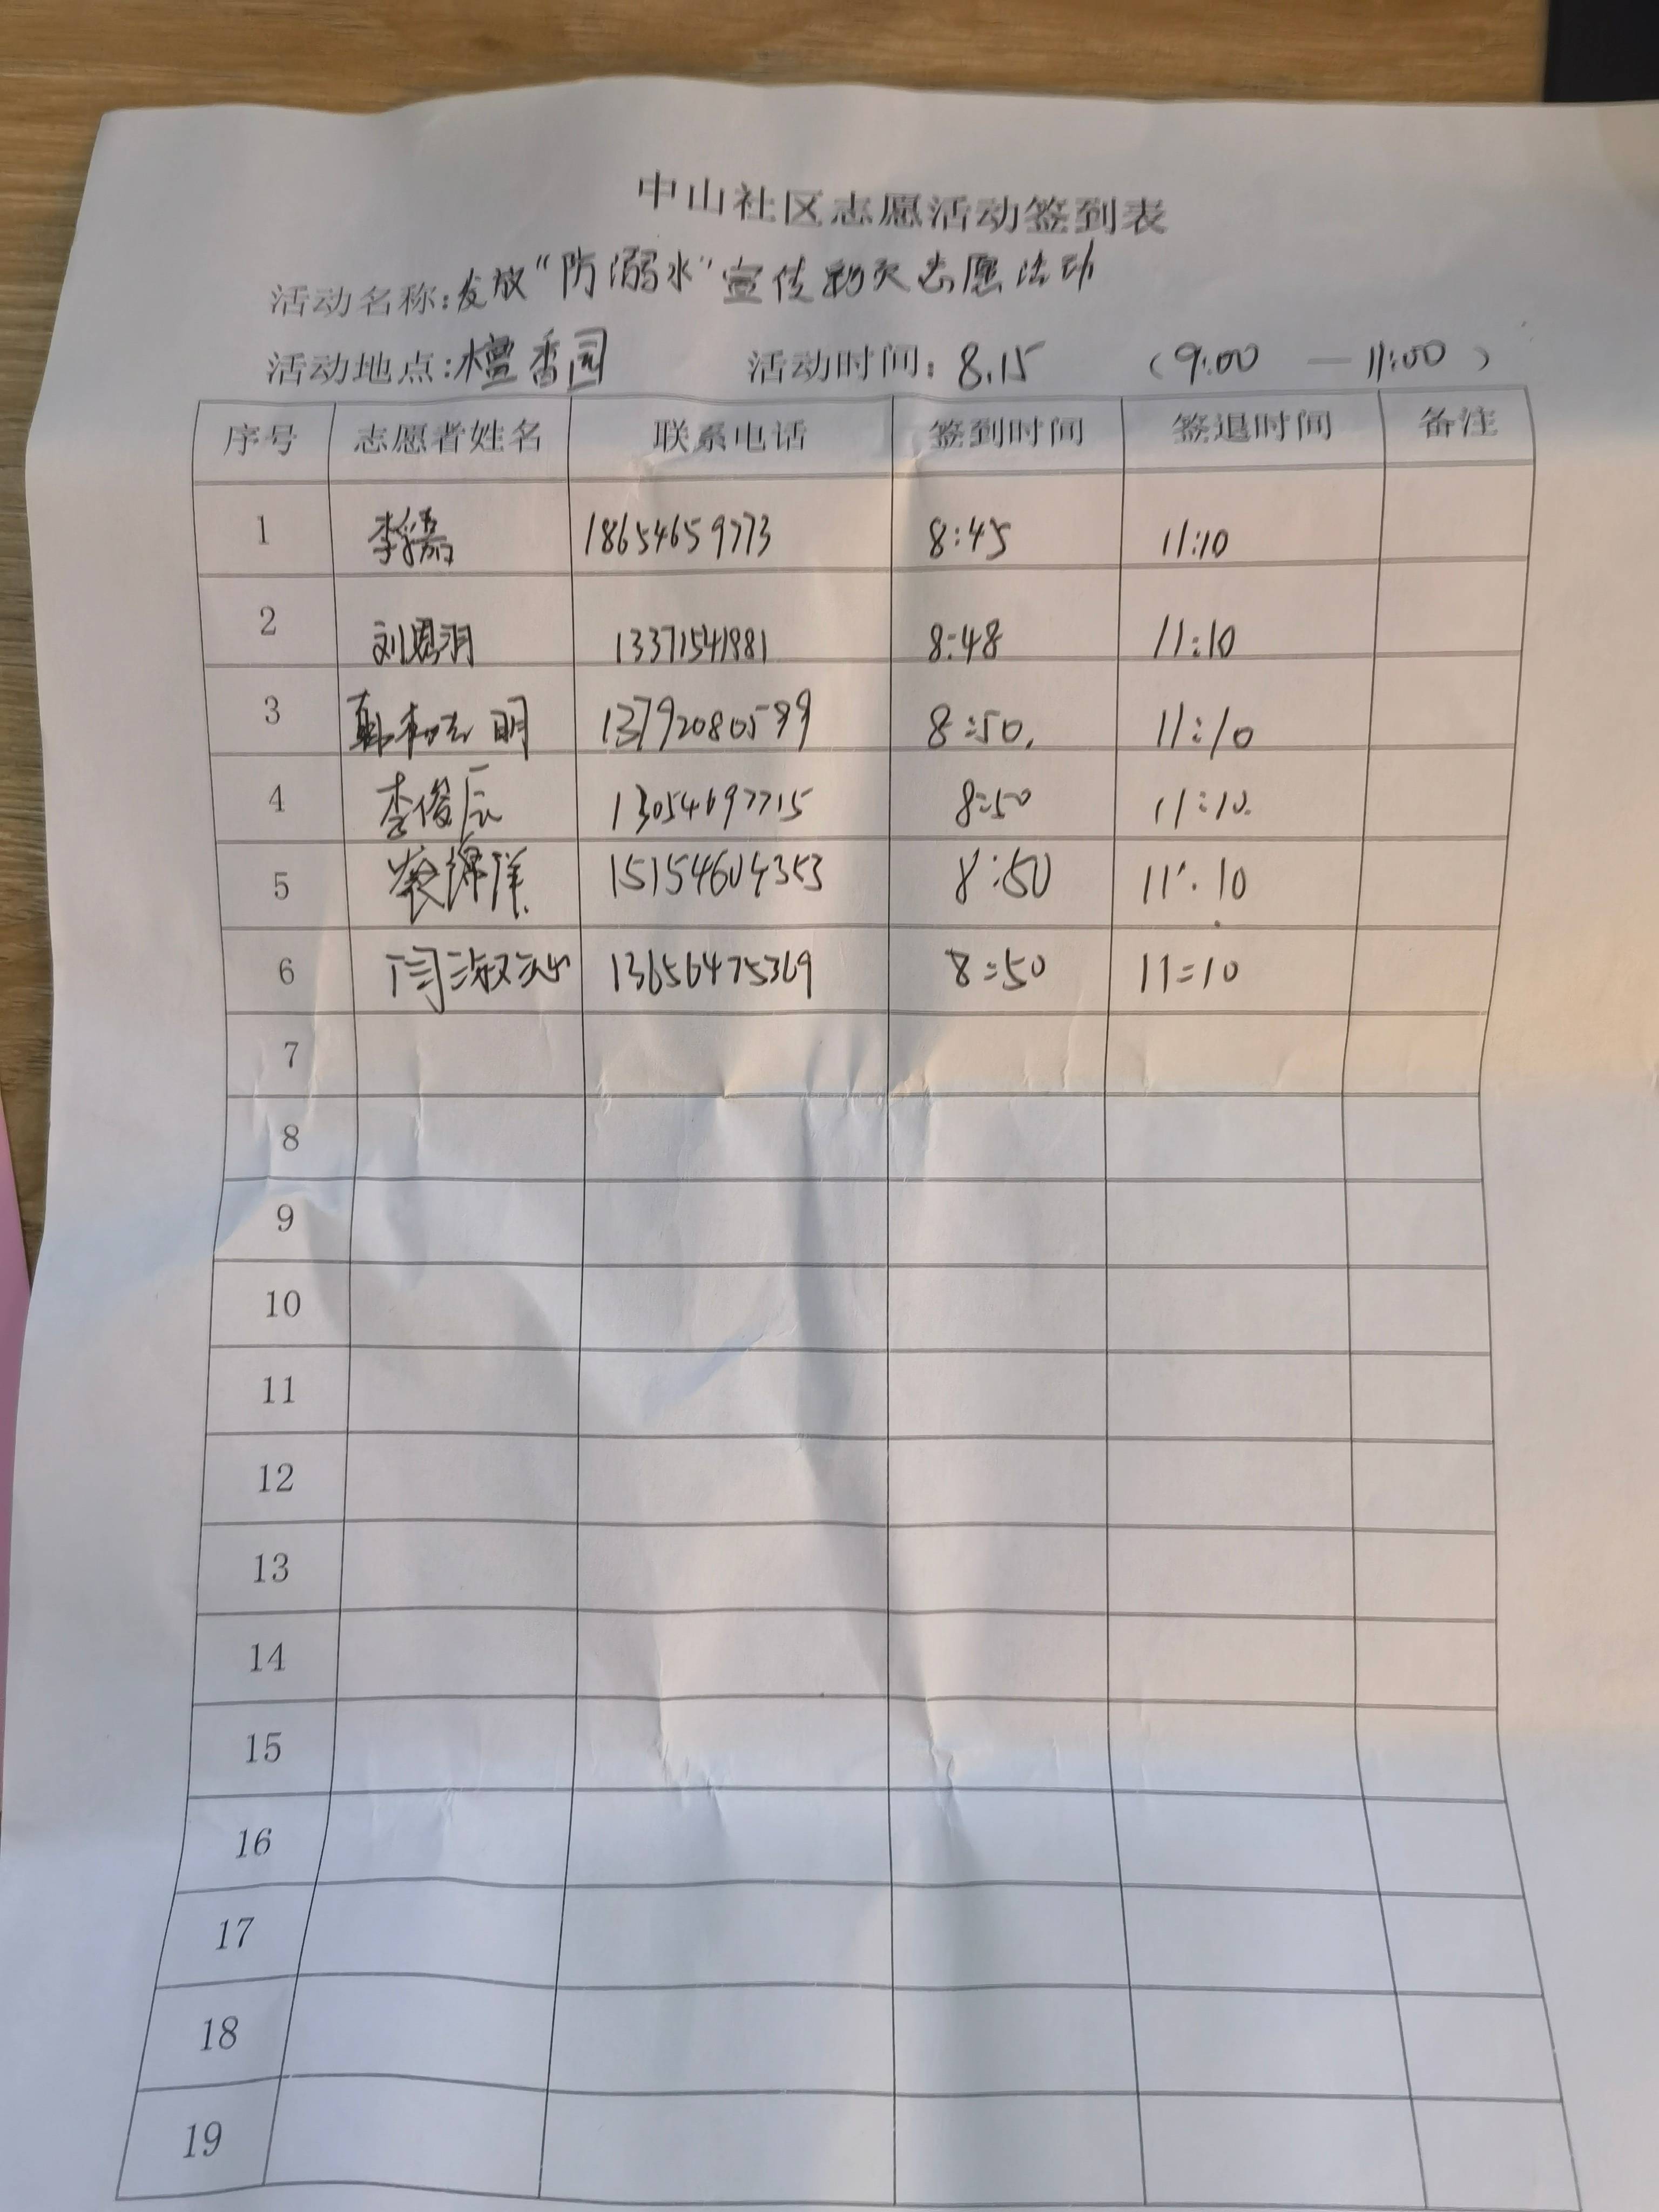 中山社区志愿活动签到表
活动名称:发放“防溺水”宣传 志愿活动
活动地点:檀香园 活动时间: 8.15 (9:00 — 11:00)
序号 志愿者姓名 联系电话 签到时间 签退时间 备注
1 18654659773 8:45 11:10
2 刘恩羽 13371541981 8:48 11:10
3 明 13792080599 8:50. 11:10
4 李俊辰 13054697715 8:50 11:10
5 15154604353 8:50 11:10
6 闫淑沁 13656475369 8:50 11:10
7
8
9
10
11
12
13
14
15
16
17
18
19